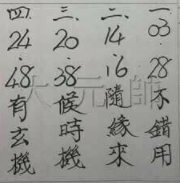 一.03.28不錯用
二.14.16隨緣來
三.20.38候時機
四.24.48有玄機